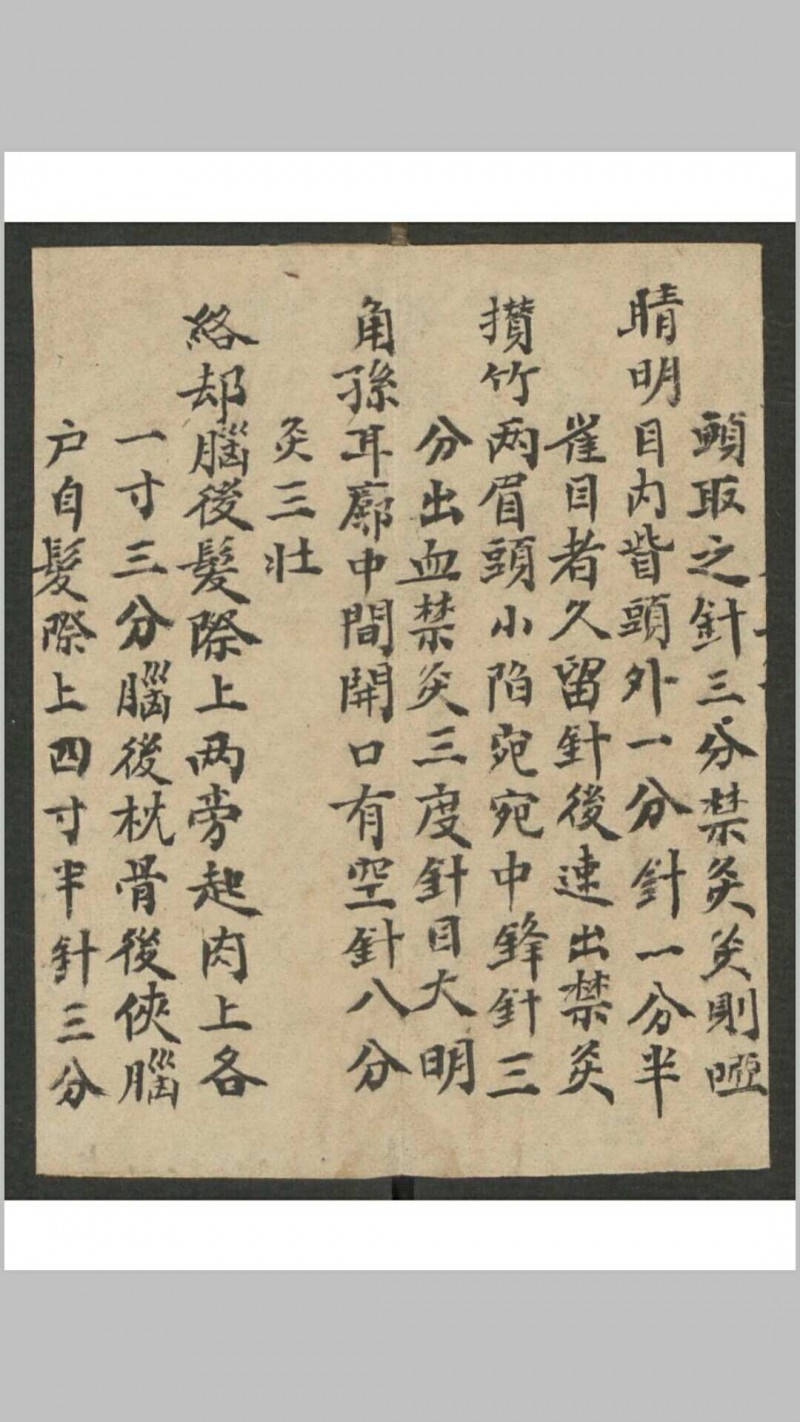 頭取之針三分禁灸灸則啞
睛明目内眥頭外一分針一分半
崔目者久留針後速出禁灸
攅竹两眉頭小陷宛宛中鋒針三
分出血禁灸三度針目大明
角孫耳廓中間開口有空針八分
灸三壮
絡却腦後髮際上两旁起肉上各
一寸三分腦後枕骨後俠腦
户自髮際上四寸半針三分